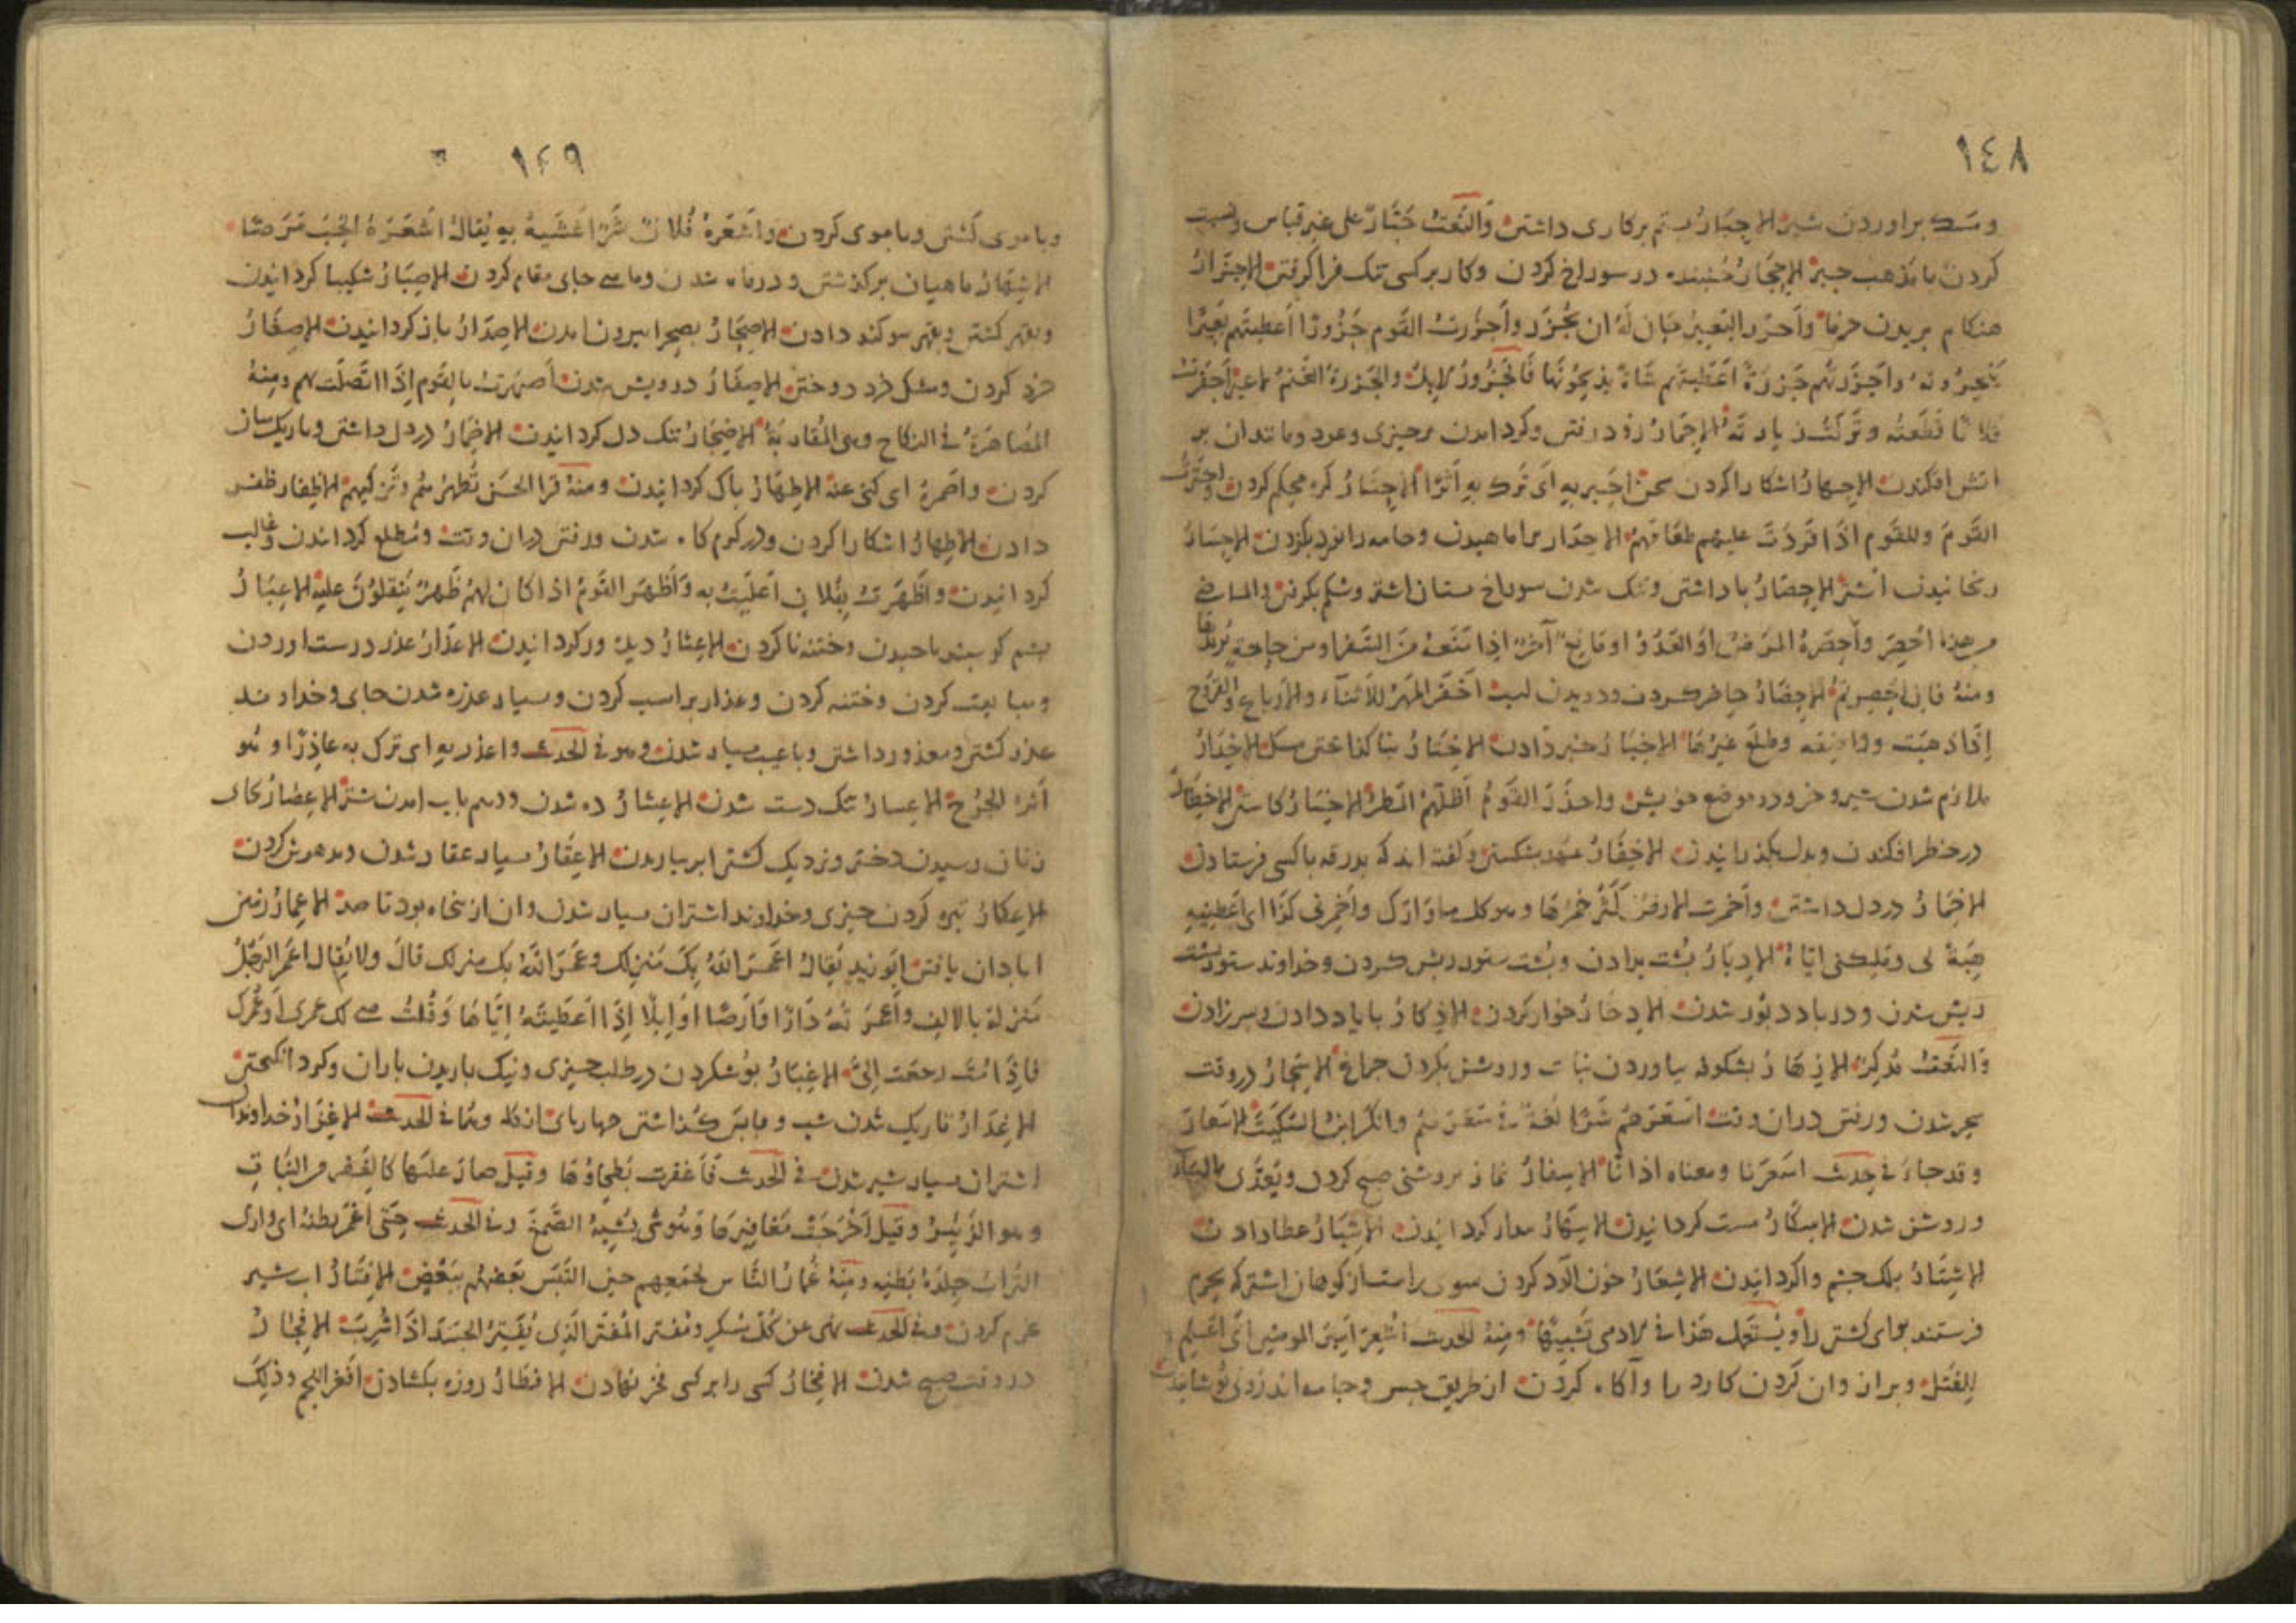 ١٤٨
براوردن شیر الاجبار بستم برکاری داشتن والنعت جبار علی غیر قیاس ونسبت
کردن با مذهب جبر الاجحار جنبنده در سوراخ کردن وکار بر کسی تنک فرا کرفتن الاجزار
هنکام بریدن خرما واجزر البعیر حان له ان یجزر واجزرت القوم جزورا اعطیتهم بعیرا
ینحرونه واجزرتهم جزرة اعطیتهم شاة یذبحونها فالجزور الابل والجزرة الغنم لا غیر اجفرت
فلانا قطعته وترکت زیارته الاجمار زود رفتن وکرد امدن بر چیزی وعود ومانند ان بر
اتش افکندن الاجهار اشکارا کردن سخن احبر به ای ترک به اثرا الاحتار کره محکم کردن واحترت
القوم وللقوم اذا علیهم طعامهم الاحدار براماهیدن وجامه را نورد بکردن الاحسار
رنجانیدن اشتر الاحصار باداشتن وتنک شدن سوراخ پستان اشتر وشکم بکرفتن والماضی
من هذا احصر واحصره المرض او العدو او مانع آخر اذا منعه من السفر او من حاجة یریدها
ومنه فان احصرتم الاحضار حاضر کردن ودویدن اسب احفر المهر للاثناء والارباع والقروح
اذا ذهبت رواضعه وطلع غیرها الاخبار خبر دادن الاختار الاخدار
ملازم شدن شیر وجز ودر موضع خویش واخدر القوم اظلهم المطر الاخسار کاستن الاخطار
در خطر افکندن وبدل بکذرانیدن الاخفار عهد بشکستن وکفته اند که بدرقه با کسی فرستادن
الاخمار در دل داشتن واخمرت الارض کثر خمرها وهو کل ما واراک واخمرنی کذا ای اعطینیه
هبة لی وملکنی ایاه الادبار پشت بدادن وپشت ستور ریش کردن وخداوند ستور پشت
ریش شدن ودر باد دبور شدن الادخار خوار کردن الاذکار با یاد دادن ونر زادن
والنعت مذکر الازهار بشکوفه بیاوردن نبات وروشن بکردن چراغ الاسحار در وقت
سحر شدن ورفتن دران وقت اسعرهم شرا لغة فی سعرهم وانکر ابن السکیت الاسعار
وقد جاء فی حدیث اسعرنا ومعناه اذانا الاسفار نماز بروشنی صبح کردن ویعدی بالباء
وروشن شدن الاسکار مست کردانیدن الاسهار بیدار کردانیدن الاشبار عطا دادن
الاشتار پلک چشم واکردانیدن الاشعار خون الود کردن سوی راست از کوهان اشتر که بحرم
فرستند برای کشتن را ویستعمل هذا فی الادمی تشبیها ومنه الحدیث اشعر امیر المومنین ای اعلم
للقتل وبراز وان کردن کارد را وآکاه کردن از طریق حس وجامه اندرونی پوشانیدن
١٤٩
وبا موی کشتن وبا موی کردن واشعره فلان شرا غشیه به یقال اشعره الحب مرضا
الاشهار ماهیان برکذشتن ودر ماه شدن وماهی جای مقام کردن الاصبار شکیبا کردانیدن
وبقهر کشتن وبقهر سوکند دادن الاصحار بصحرا بیرون امدن الاصدار باز کردانیدن الاصغار
خرد کردن ومشک خرد دوختن الاصفار درویش شدن اصهرت بالقوم اذا اتصلت بهم ومنه
المصاهرة فی النکاح وهی المقاربة الاضجار تنک دل کردانیدن الاضمار در دل داشتن وباریک میان
کردن واضمره ای کنی عنه الاطهار پاک کردانیدن ومنه قرا الحسن تطهرهم وتزکیهم الاظفار ظفر
دادن الاظهار اشکارا کردن ودر کرم کاه شدن ورفتن دران وقت ومطلع کرداندن وغالب
کردانیدن واظهرت بفلان اعلیت به واظهر القوم اذا کان لهم ظهر ینقلون علیه الاعبار
پشم کوسپند ناچیدن وختنه نا کردن الاعثار دیده ور کردانیدن الاعذار عذر درست اوردن
وختنه کردن وعذار بر اسب کردن وبسیار عذره شدن جای وخداوند
عذر کشتن ومعذور داشتن وبا عیب بسیار شدن وهو فی الحدیث واعذر به ای ترک به عاذرا وهو
اثر الجرح الاعسار تنک دست شدن الاعشار ده شدن ودهم باب امدن شتر الاعصار بجای
زنان رسیدن دختر ونزدیک کشتن ابر بباریدن الاعقار بسیار عقار شدن ومدهوش کردن
الاعکار تیره کردن چیزی وخداوند اشتران بسیار شدن وان از پنجاه بود تا صد الاعمار زمین
ابادان یافتن ابو زید یقال اعمر الله بک منزلک وعمر الله بک منزلک قال ولا یقال اعمر الرجل
منزله بالالف واعمرته دارا او ارضا او ابلا اذا اعطیته ایاها وقلت هی لک عمری او عمرک
فاذا مت رجعت الی الاغبار کوشش کردن در طلب چیزی ونیک باریدن باران وکرد انکیختن
الاغدار تاریک شدن شب وباپس کذاشتن چهار پای از کله وهما فی الحدیث الاغزار خداوند
اشتران بسیار شیر شدن فی الحدیث فاغفرت بطحاؤها وقیل صار علیها کالغفر من النبات
وهو الزئبر وقیل اخرجت مغافیرها وهو شی یشبه الصمغ وفی الحدیث حتی اغمر بطنه ای واری
التراب جلدة بطنه ومنه غمار الناس لجمعهم حین التبس بعضهم ببعض الافتار اب شیر
کرم کردن وفی الحدیث نهی عن کل مسکر ومفتر المفتر الذی یفتر الجسد اذا شرب الافجار
در وقت صبح شدن الافخار کسی را بر کسی فخر نهادن الافطار روزه بکشادن افغر النجم وذلک